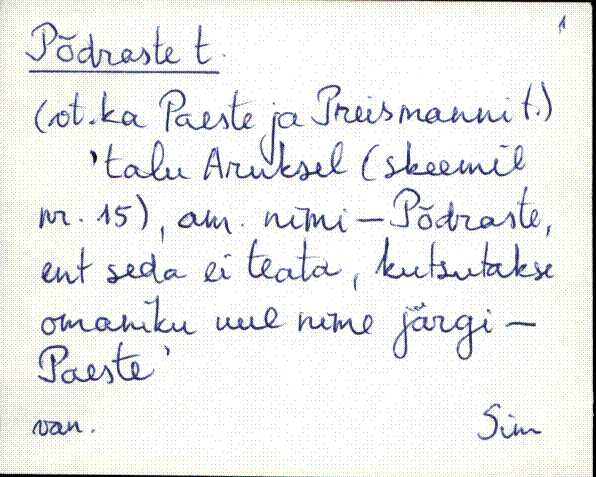 1
Põdraste t.
(vt. ka Paeste ja Preismanni t.)
'talu Aruksel (skeemil
nr. 15), am. nimi – Põdraste,
ent seda ei teata, kutsutakse
omaniku uue nime järgi –
Paeste'
van. Sim